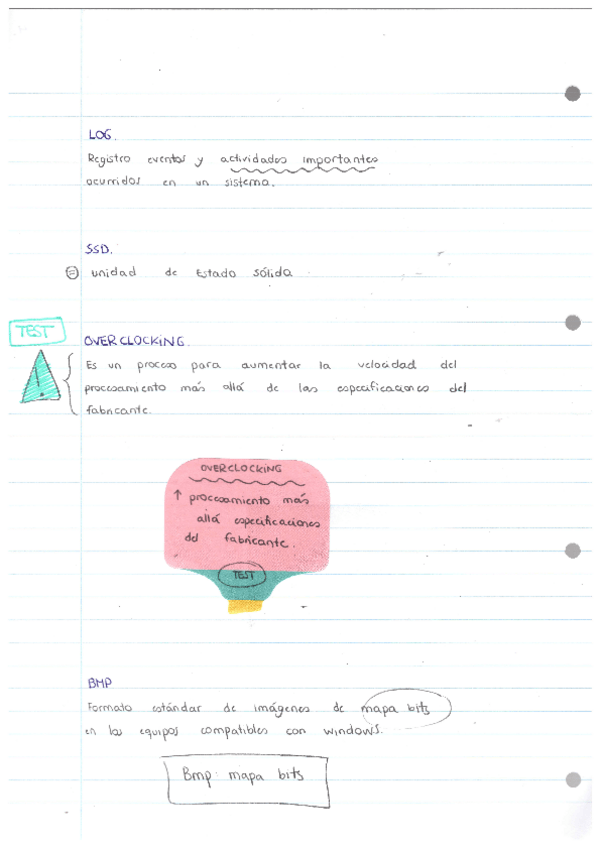 LOG.
Registro eventos y actividades importantes
ocurridos en un sistema.
SSD.
unidad de Estado Sólido
TEST
OVERCLOCKING.
Es un proceso para aumentar la velocidad del
procesamiento más allá de las especificaciones del
fabricante.
OVERCLOCKING
↑ procesamiento más
allá especificaciones
del fabricante.
TEST
BMP
Formato estándar de imágenes de mapa bits
en los equipos compatibles con windows.
Bmp: mapa bits